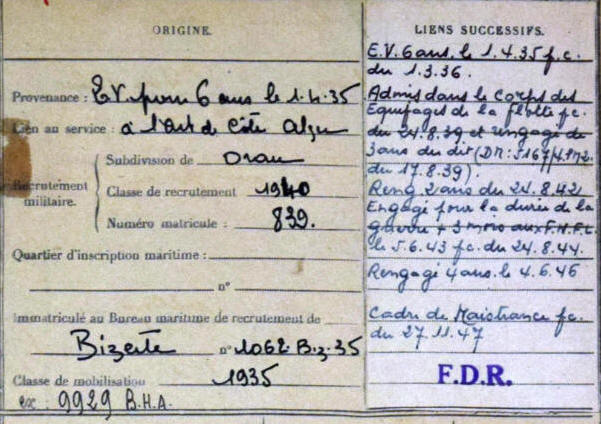 ORIGINE.
Provenance : E.V. pour 6 ans le 1.4.35
Lien au service : à l'Art de Côte Alger
Subdivision de Oran
Recrutement militaire.
Classe de recrutement 1940
Numéro matricule : 839.
Quartier d'inscription maritime :
n°
Immatriculé au Bureau maritime de recrutement de
Bizerte n° 1062.Biz.35
Classe de mobilisation 1935
ex : 9929 B.H.A.
LIENS SUCCESSIFS.
E.V. 6 ans. le 1.4.35 f.c.
du 1.3.36.
Admis dans le Corps des
Equipages de la flotte fc.
du 24.8.39 et rengagé de
3 ans du dit (DM: 5167/4.PM2.
du 17.8.39).
Reng. 2 ans du 24.8.42
Engagé pour la durée de la
guerre + 3 mois aux F.N.F.L
le 5.6.43 fc. du 24.8.44.
Rengagé 4 ans. le 4.6.46
Cadre de Maistrance fc.
du 27.11.47
F.D.R.